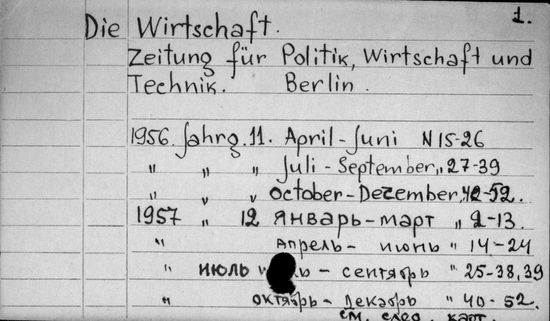 1.
Die Wirtschaft.
Zeitung für Politik, Wirtschaft und
Technik. Berlin.
1956. Jahrg. 11. April-Juni N 15-26
" " " Juli-September " 27-39
" " " October-Dezember, 40-52.
1957 " 12 январь-март " 2-13.
" апрель- июнь " 14-24
" июль - сентябрь " 25-38,39
" октябрь- декабрь " 40-52.
см. след. карт.